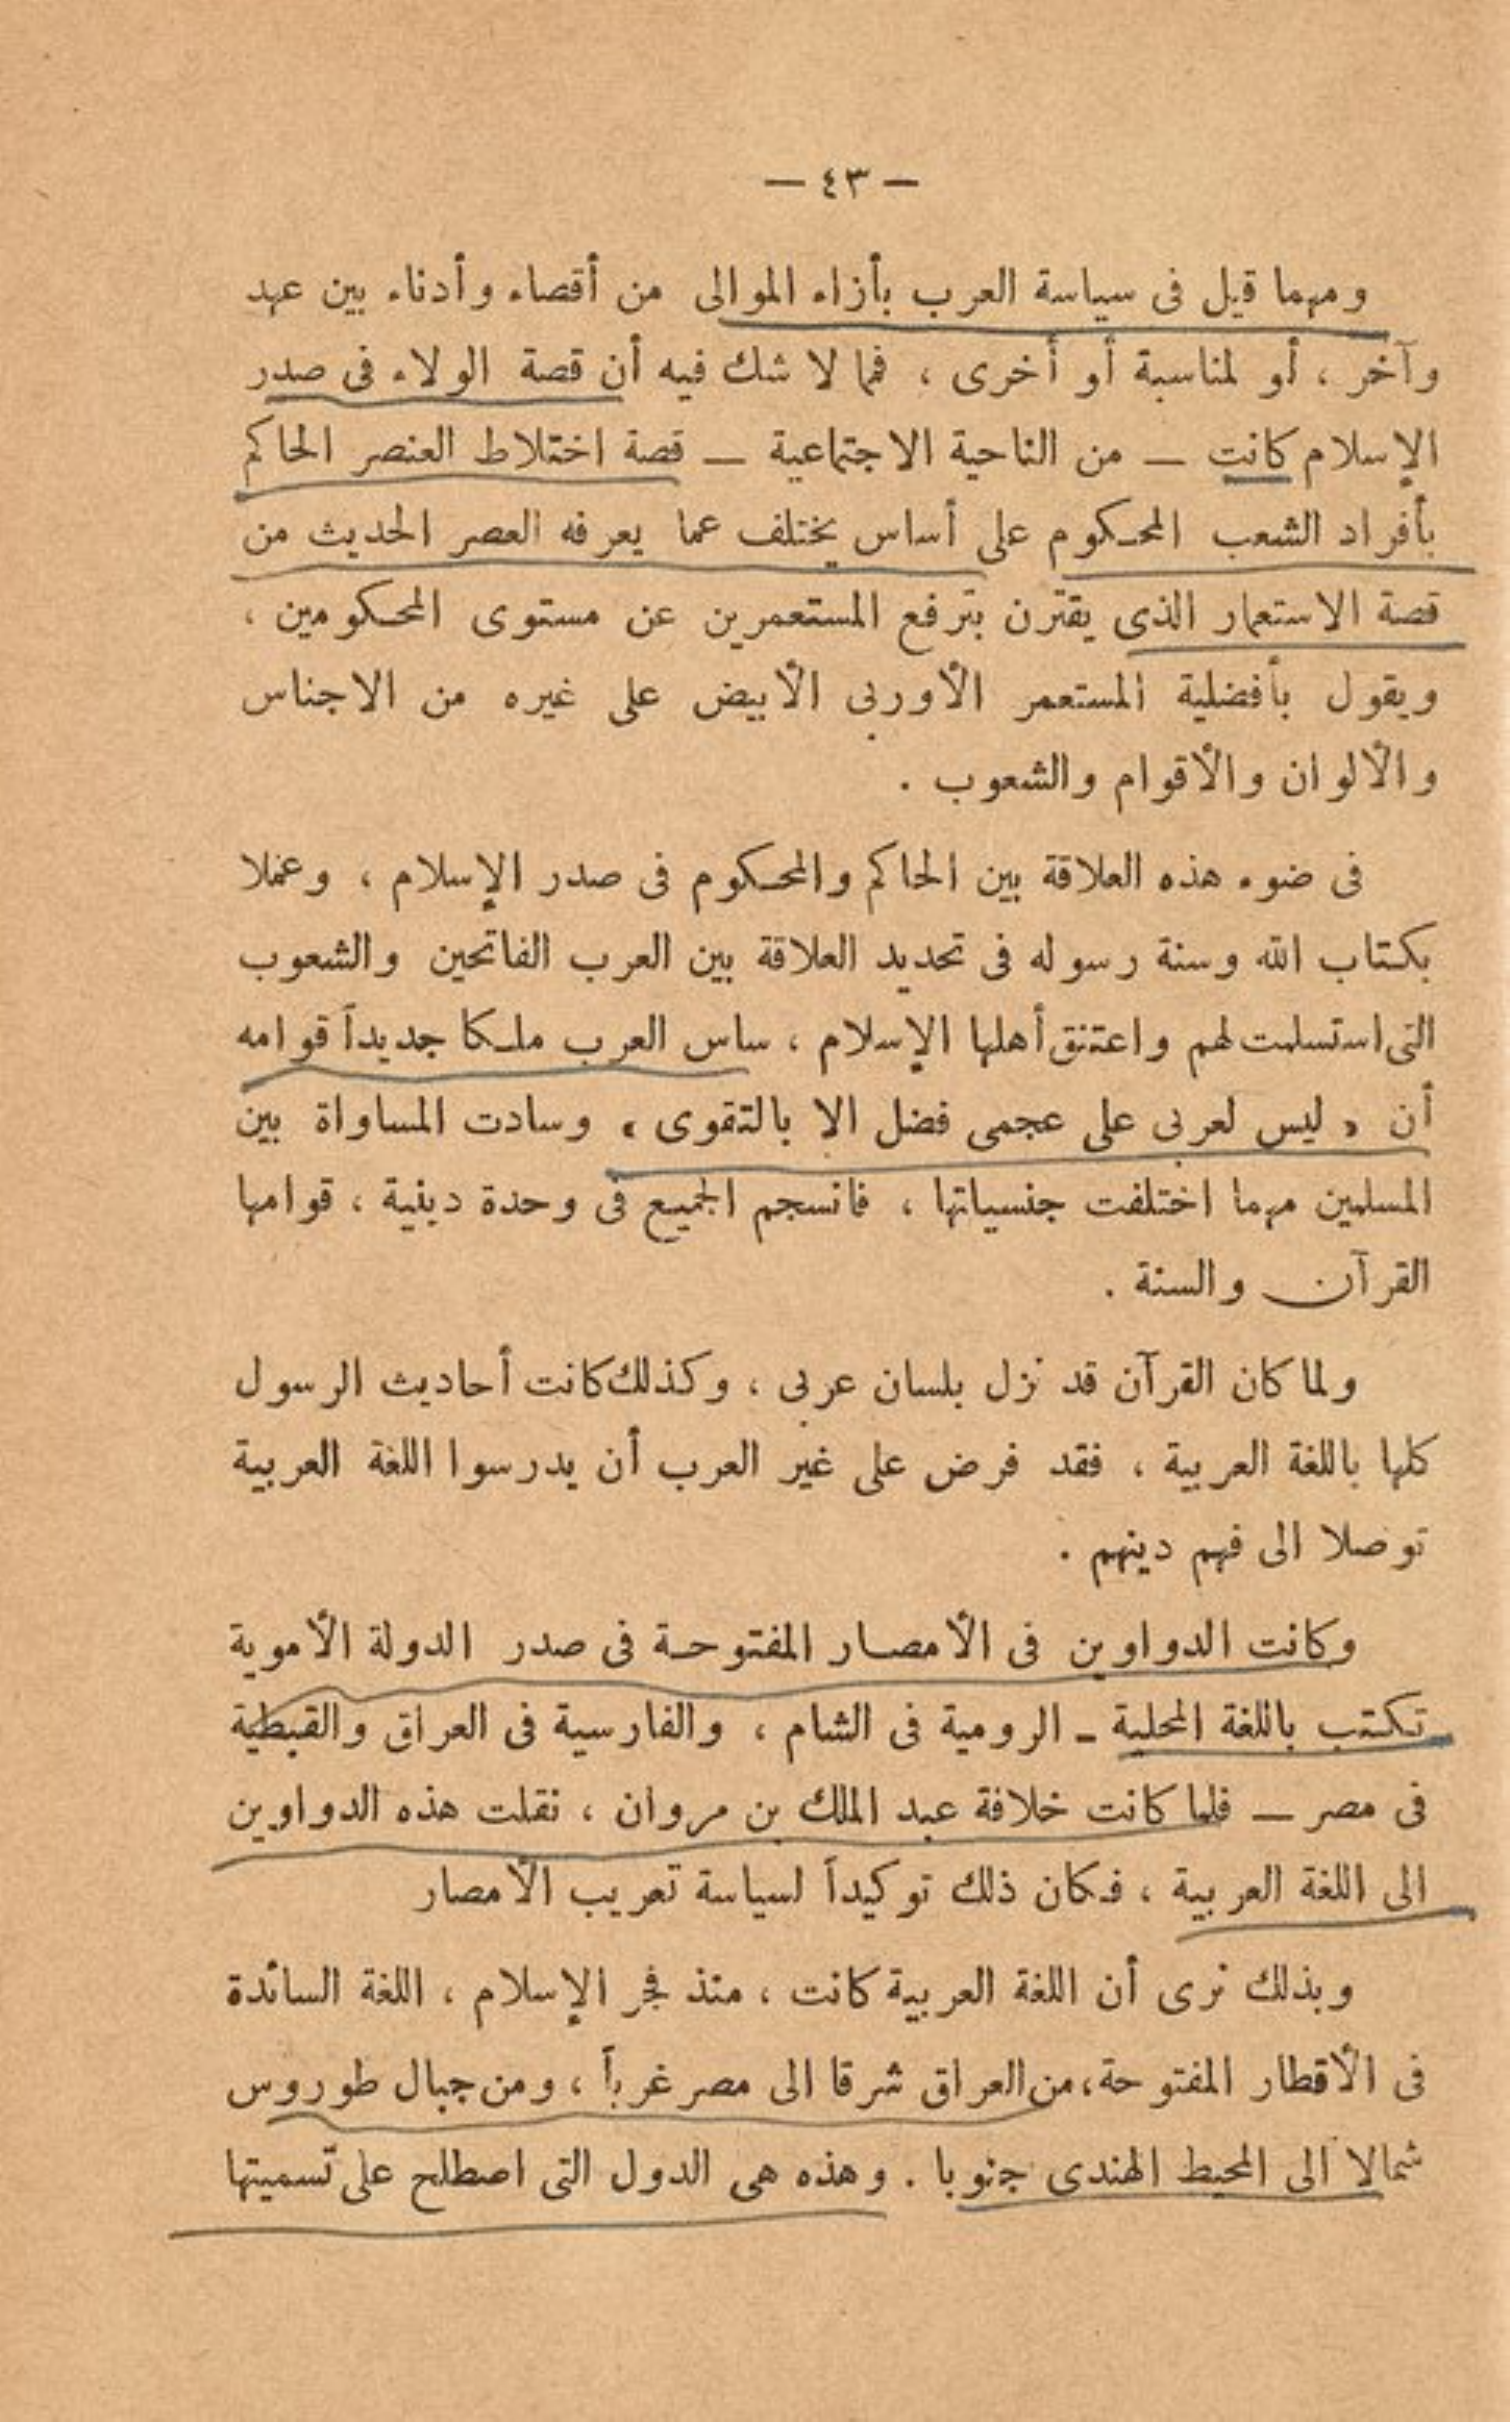 — ٤٣ —
ومهما قيل فى سياسة العرب بأزاء الموالى من أقصاء وأدناء بين عهد
وآخر ، أو لمناسبة أو أخرى ، فما لا شك فيه أن قصة الولاء فى صدر
الإسلام كانت — من الناحية الاجتماعية — قصة اختلاط العنصر الحاكم
بأفراد الشعب المحكوم على أساس يختلف عما يعرفه العصر الحديث من
قصة الاستعمار الذى يقترن بترفع المستعمرين عن مستوى المحكومين ،
ويقول بأفضلية المستعمر الأوربى الأبيض على غيره من الاجناس
والألوان والأقوام والشعوب .
فى ضوء هذه العلاقة بين الحاكم والمحكوم فى صدر الإسلام ، وعملا
بكتاب الله وسنة رسوله فى تحديد العلاقة بين العرب الفاتحين والشعوب
التى استسلمت لهم واعتنق أهلها الإسلام ، ساس العرب ملكا جديداً قوامه
أن « ليس لعربى على عجمى فضل الا بالتقوى » وسادت المساواة بين
المسلمين مهما اختلفت جنسياتها ، فانسجم الجميع فى وحدة دينية ، قوامها
القرآن والسنة .
ولما كان القرآن قد نزل بلسان عربى ، وكذلك كانت أحاديث الرسول
كلها باللغة العربية ، فقد فرض على غير العرب أن يدرسوا اللغة العربية
توصلا الى فهم دينهم .
وكانت الدواوين فى الأمصار المفتوحة فى صدر الدولة الأموية
تكتب باللغة المحلية - الرومية فى الشام ، والفارسية فى العراق والقبطية
فى مصر — فلما كانت خلافة عبد الملك بن مروان ، نقلت هذه الدواوين
الى اللغة العربية ، فكان ذلك توكيداً لسياسة تعريب الأمصار
وبذلك نرى أن اللغة العربية كانت ، منذ فجر الإسلام ، اللغة السائدة
فى الأقطار المفتوحة ، من العراق شرقا الى مصر غرباً ، ومن جبال طوروس
شمالا الى المحيط الهندى جنوبا . وهذه هى الدول التى اصطلح على تسميتها